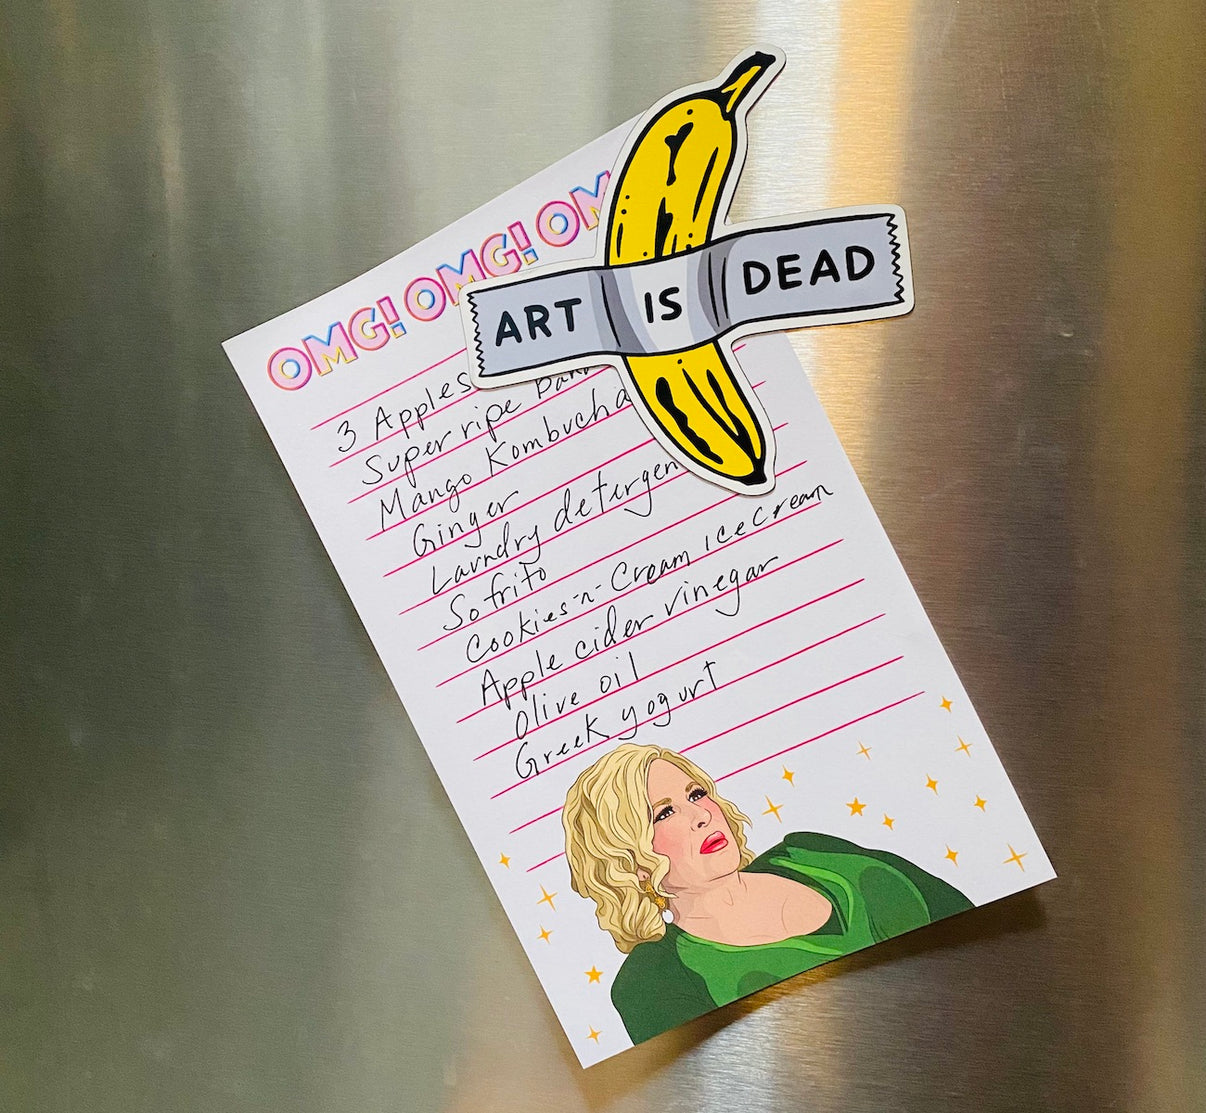 OMG! OMG! OM
ART IS DEAD
3 Apples
Super ripe bana
Mango Kombucha
Ginger
Laundry detergen
Sofrito
Cookies-n-Cream ice cream
Apple cider vinegar
Olive oil
Greek yogurt